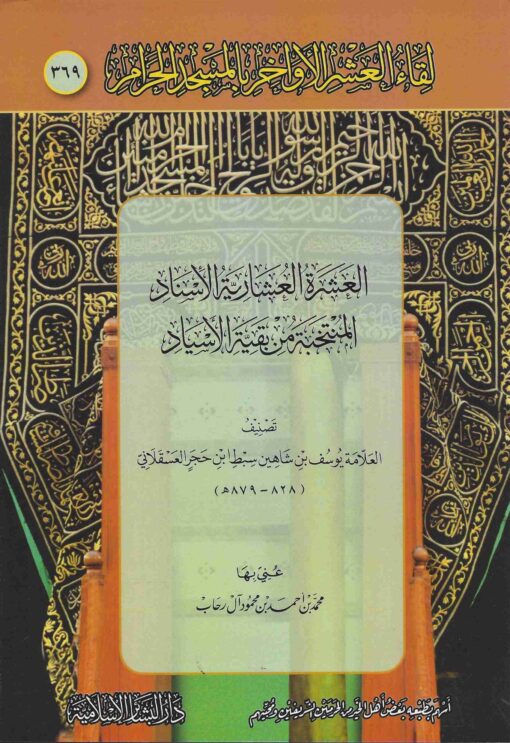 لِقَاءُ العَشْرِ الأَوَاخِرِ بِالمَسْجِدِ الحَرَامِ
٣٦٩
العَشَرَةُ العُشَارِيَّةُ الأَسْنَادِ
المُنْتَخَبَةُ مِنْ بَقِيَّةِ الأَسْيَادِ
تَصْنِيفُ
العَلَّامَة يُوسُف بْن شَاهِين سِبْط ابْن حَجَر العَسْقَلَانِيّ
(٨٢٨ - ٨٧٩ هـ)
عُنِيَ بِهَا
مُحَمَّد بْن أَحْمَد بْن مَحْمُود آل رِحَاب
أَسْهَمَ بِطَبْعِهِ بَعْضُ أَهْلِ الخَيْرِ مِنَ الحَرَمَيْنِ الشَّرِيفَيْنِ وَمُحِبِّيهِمْ
دَارُ البَشَائِرِ الإِسْلَامِيَّة